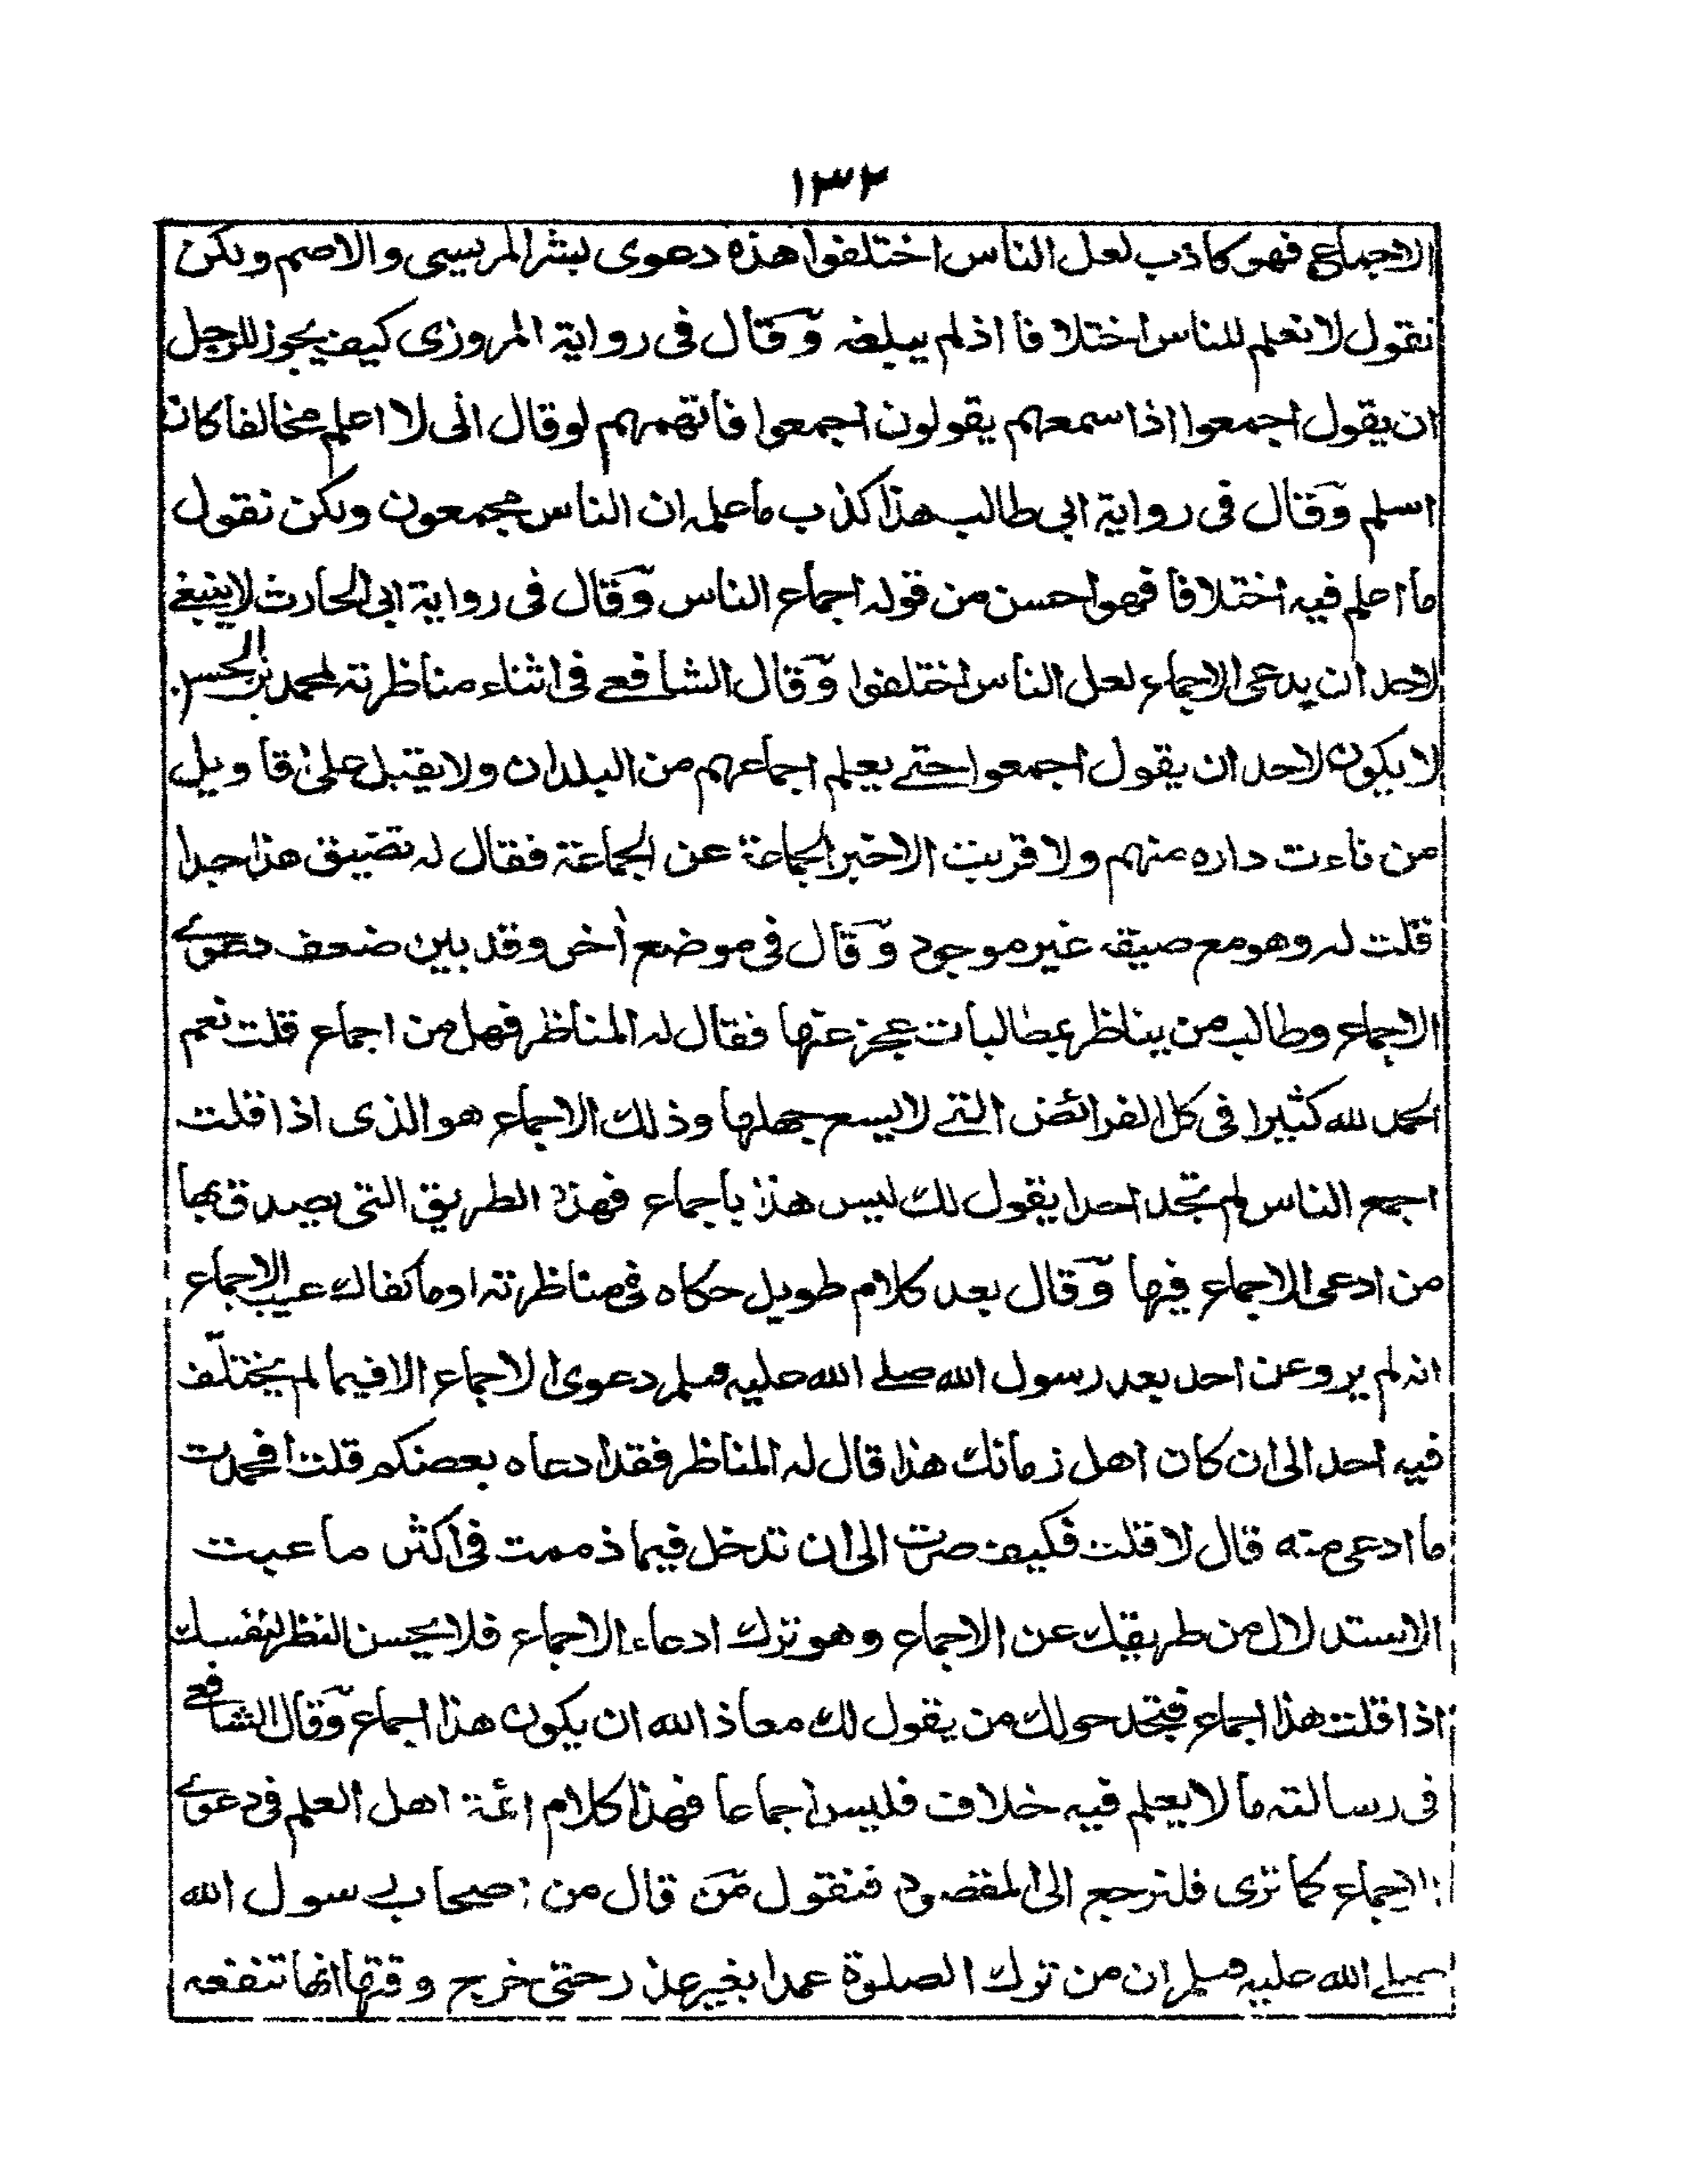 ١٣٢
الاجماع فهو كاذب لعل الناس اختلفوا هذه دعوى بشر المريسي والاصم ولكن
نقول لا نعلم للناس اختلافا اذ لم يبلغه وقال في رواية المروزي كيف يجوز للرجل
ان يقول اجمعوا اذا سمعهم يقولون اجمعوا فاتهمهم لو قال انى لا اعلم مخالفا كان
اسلم وقال في رواية ابي طالب هذا كذب ما علمه ان الناس مجمعون ولكن نقول
ما اعلم فيه اختلافا فهو احسن من قوله اجماع الناس وقال في رواية ابي الحارث لا ينبغي
لاحد ان يدعى الاجماع لعل الناس اختلفوا وقال الشافعي في اثناء مناظرته لمحمد بن الحسن
لا يكون لاحد ان يقول اجمعوا حتى يعلم اجماعهم من البلدان ولا يقبل على اقاويل
من ناءت داره منهم ولا قربت الا خبر الجماعة عن الجماعة فقال له تضيق هذا جدا
قلت له وهو مع ضيقه غير موجود وقال في موضع أخر وقد بين ضعف دعوى
الاجماع وطالب من يناظر بمطالبات عجز عنها فقال له المناظر فهل من اجماع قلت نعم
الحمد لله كثيرا في كل الفرائض التي لا يسع جهلها وذلك الاجماع هو الذي اذا قلت
اجمع الناس لم تجد احدا يقول لك ليس هذا باجماع فهذه الطريق التي يصدق بها
من ادعى الاجماع فيها وقال بعد كلام طويل حكاه في مناظرته اوما كفاك عيب الاجماع
انه لم يرو عن احد بعد رسول الله صلى الله عليه وسلم دعوى الاجماع الا فيما لم يختلف
فيه احد الى ان كان اهل زمانك هذا قال له المناظر فقد ادعاه بعضكم قلت افحمدت
ما ادعى منه قال لا قلت فكيف صرت الى ان تدخل فيما ذممت في اكثر ما عبت
الاستدلال من طريقك عن الاجماع وهو ترك ادعاء الاجماع فلا يحسن النظر لنفسك
اذا قلت هذا اجماع فتجد حولك من يقول لك معاذ الله ان يكون هذا اجماع وقال الشافعي
في رسالته ما لا يعلم فيه خلاف فليس اجماعا فهذا كلام ائمة اهل العلم في دعوى
الاجماع كما ترى فلنرجع الى المقصود فنقول من قال من اصحاب رسول الله
صلى الله عليه وسلم ان من ترك الصلوة عمدا بغير عذر حتى خرج وقتها انها تنفعه